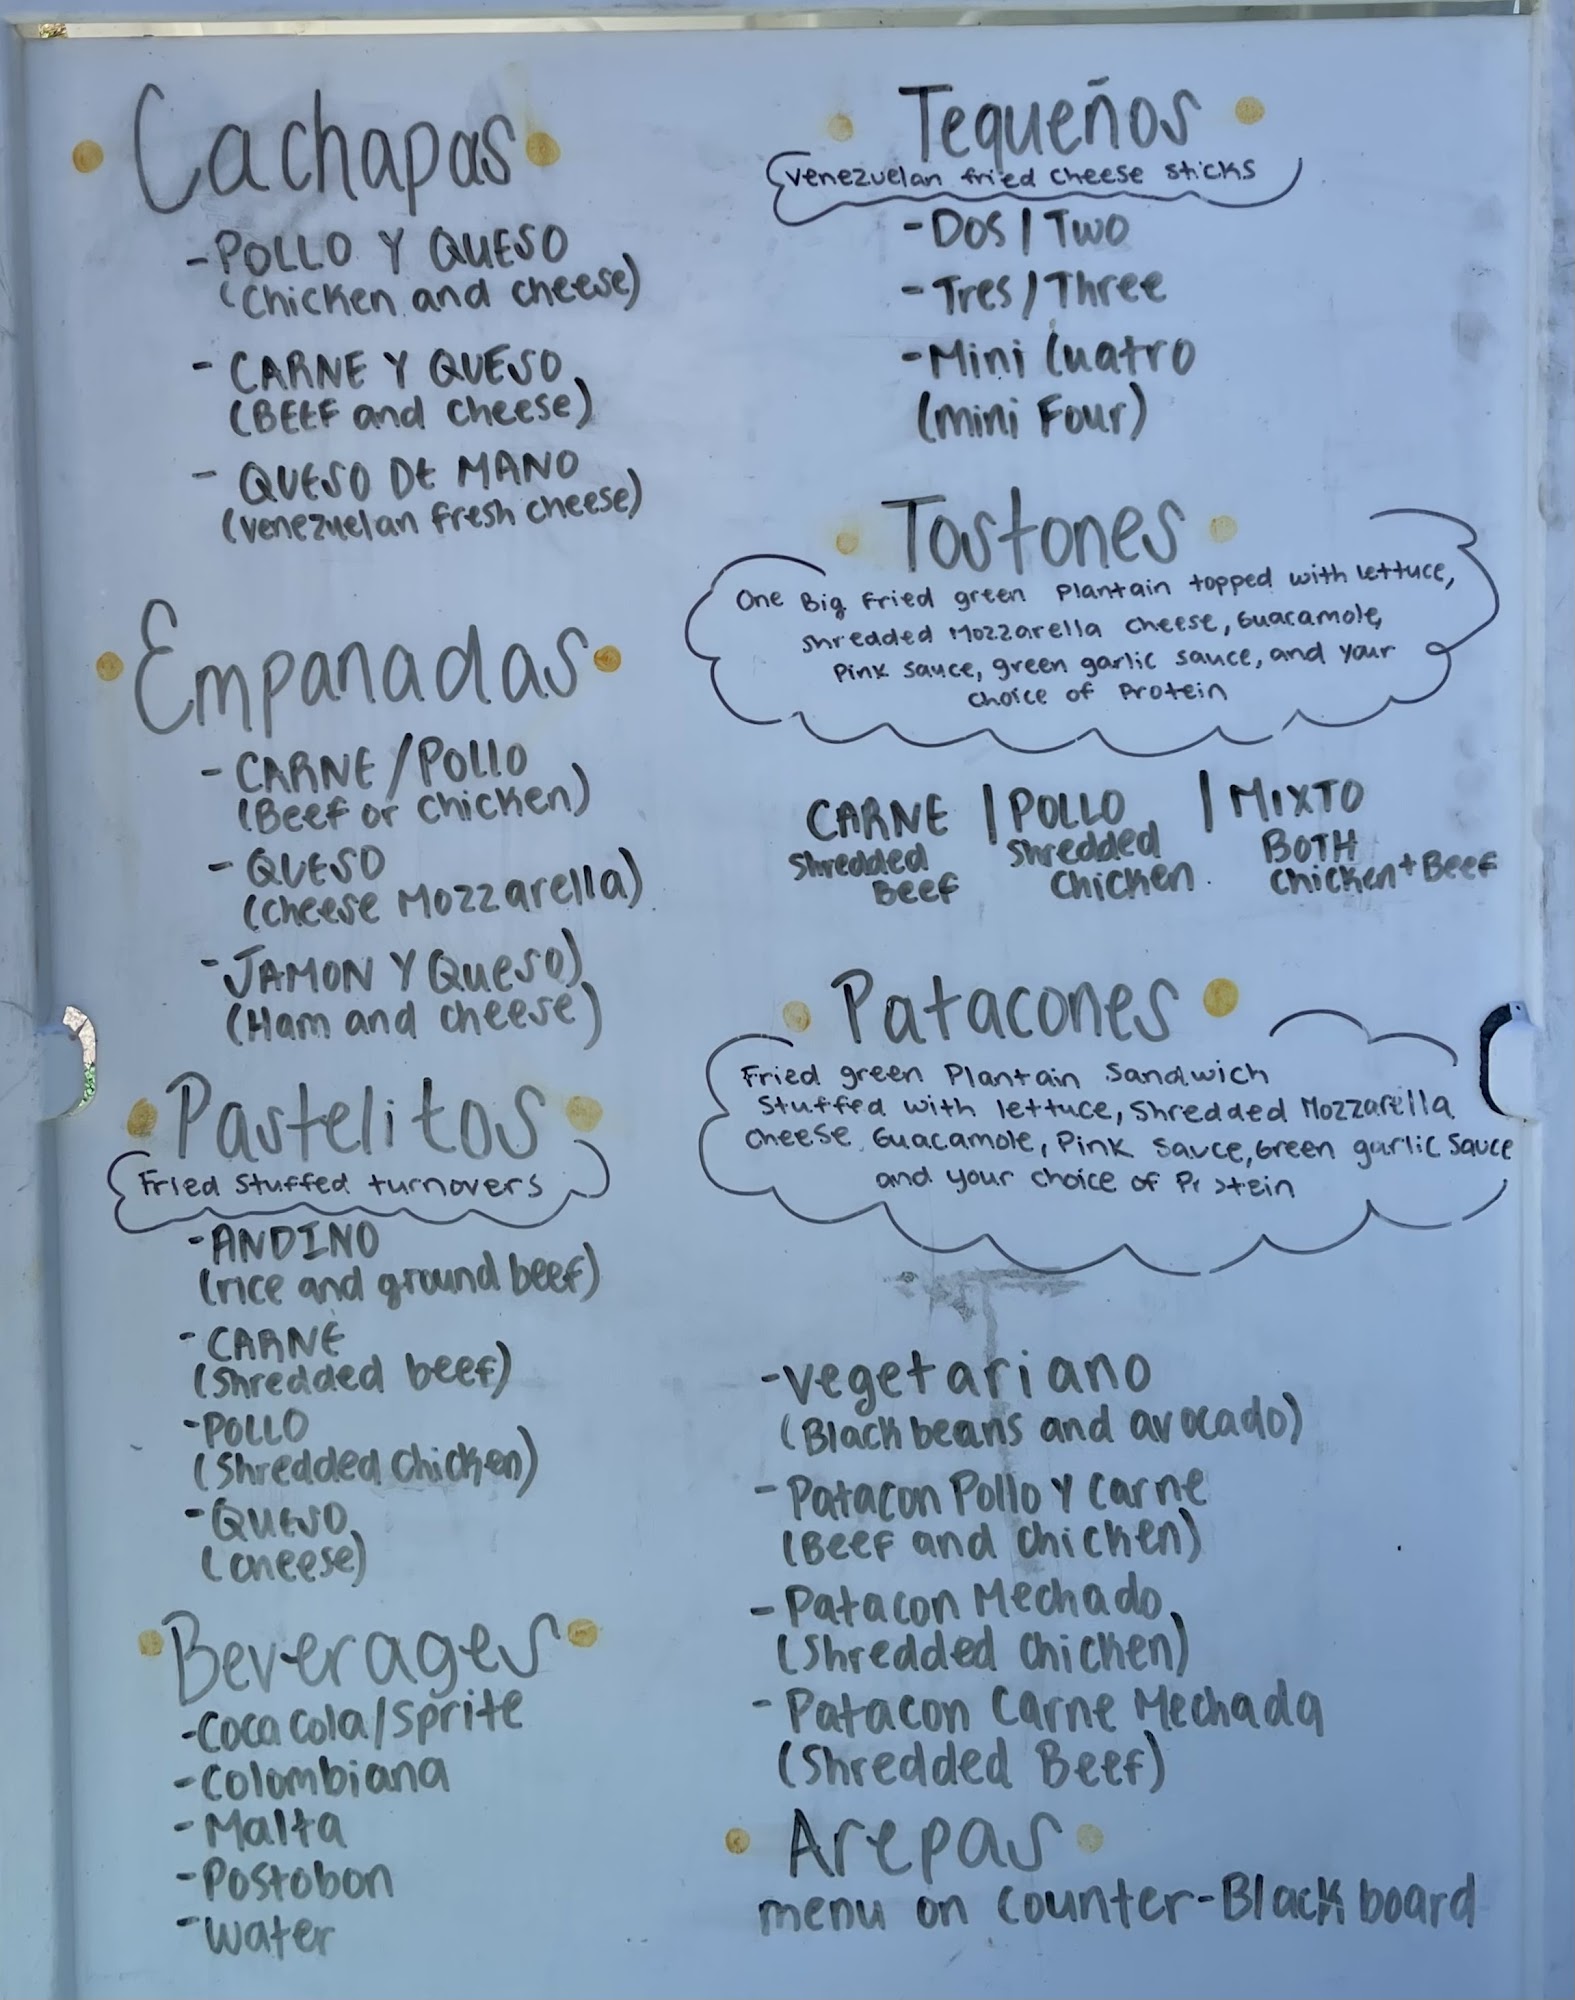 Cachapas
- POLLO Y QUESO
(Chicken and cheese)
- CARNE Y QUESO
(BEEF and cheese)
- QUESO DE MANO
(Venezuelan Fresh cheese)
Empanadas
- CARNE/POLLO
(Beef or chicken)
- QUESO
(Cheese Mozzarella)
- JAMON Y QUESO)
(Ham and cheese)
Pastelitos
Fried Stuffed turnovers
- ANDINO
(rice and ground beef)
- CARNE
(Shredded beef)
- POLLO
(Shredded Chicken)
- QUESO
(Cheese)
Beverages
- Coca Cola/Sprite
- Colombiana
- Malta
- Postobon
- Water
Tequeños
Venezuelan fried cheese sticks
- Dos | Two
- Tres / Three
- Mini Cuatro
(mini Four)
Tostones
One Big Fried green Plantain topped with lettuce,
Shredded Mozzarella Cheese, Guacamole,
Pink sauce, green garlic sauce, and your
choice of Protein
CARNE | POLLO | MIXTO
Shredded Shredded BOTH
Beef Chicken. Chicken + Beef
Patacones
Fried green Plantain Sandwich
Stuffed with lettuce, Shredded Mozzarella
Cheese, Guacamole, Pink Sauce, Green garlic Sauce
and your choice of Protein
- Vegetariano
(Black beans and avocado)
- Patacon Pollo Y Carne
(Beef and Chicken)
- Patacon Mechado
(Shredded Chicken)
- Patacon Carne Mechada
(Shredded Beef)
Arepas
menu on Counter-Black board